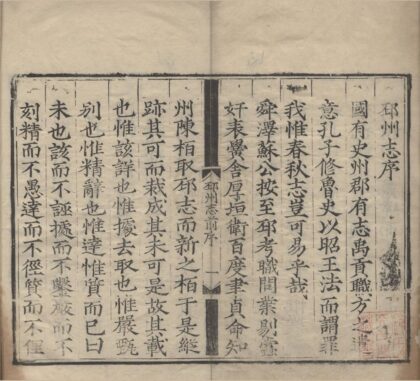 邳州志序
國有史州郡有志禹貢職方之遺
意孔子修魯史以昭王法而謂罪
我惟春秋志豈可易乎哉
舜澤蘇公按至邳考職問業剔蠹
奸表黌舍厚垣衛百度聿貞命知
邳州志前序
一
州陳柏取邳志而新之柏于是縱
跡其可而裁成其未可是故其載
也惟該詳也惟據去取也惟嚴甄
別也惟精辭也惟達惟質而已曰
未也該而不誣據而不鑿嚴而不
刻精而不愚達而不徑質而不俚